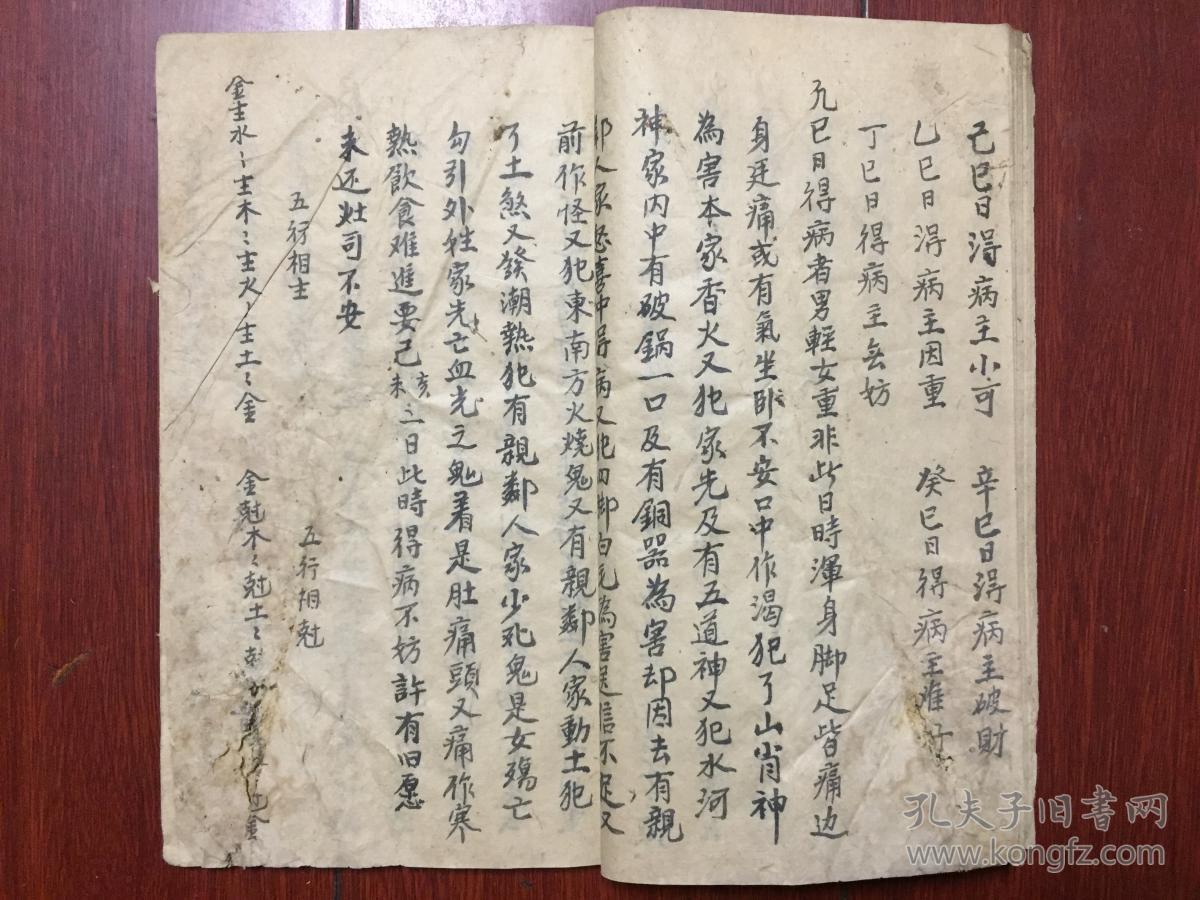 己巳日得病主小可　辛巳日得病主破財
乙巳日得病主因重　癸巳日得病主难好
丁巳日得病主無妨
凢巳日得病者男輕女重非此日時渾身脚足皆痛边
身廷痛或有氣坐卧不安口中作渴犯了山肖神
為害本家香火又犯家先及有五道神又犯水河
神家内中有破鍋一口及有銅器為害却因去有親
人家 喜中得病又犯四脚白 為害 信不 又
前作怪又犯東南方火燒鬼又有親鄰人家動土犯
了土煞又發潮熱犯有親鄰人家少死鬼是女殤亡
勾引外姓家先亡血光之鬼着是肚痛頭又痛作寒
熱飲食难進要己亥未三日此時得病不妨許有旧愿
未还灶司不安
五行相生
五行相尅
金生水〻生木〻生火〻生土〻金
金尅木〻尅土〻尅 金
孔夫子旧書网
www.kongfz.com